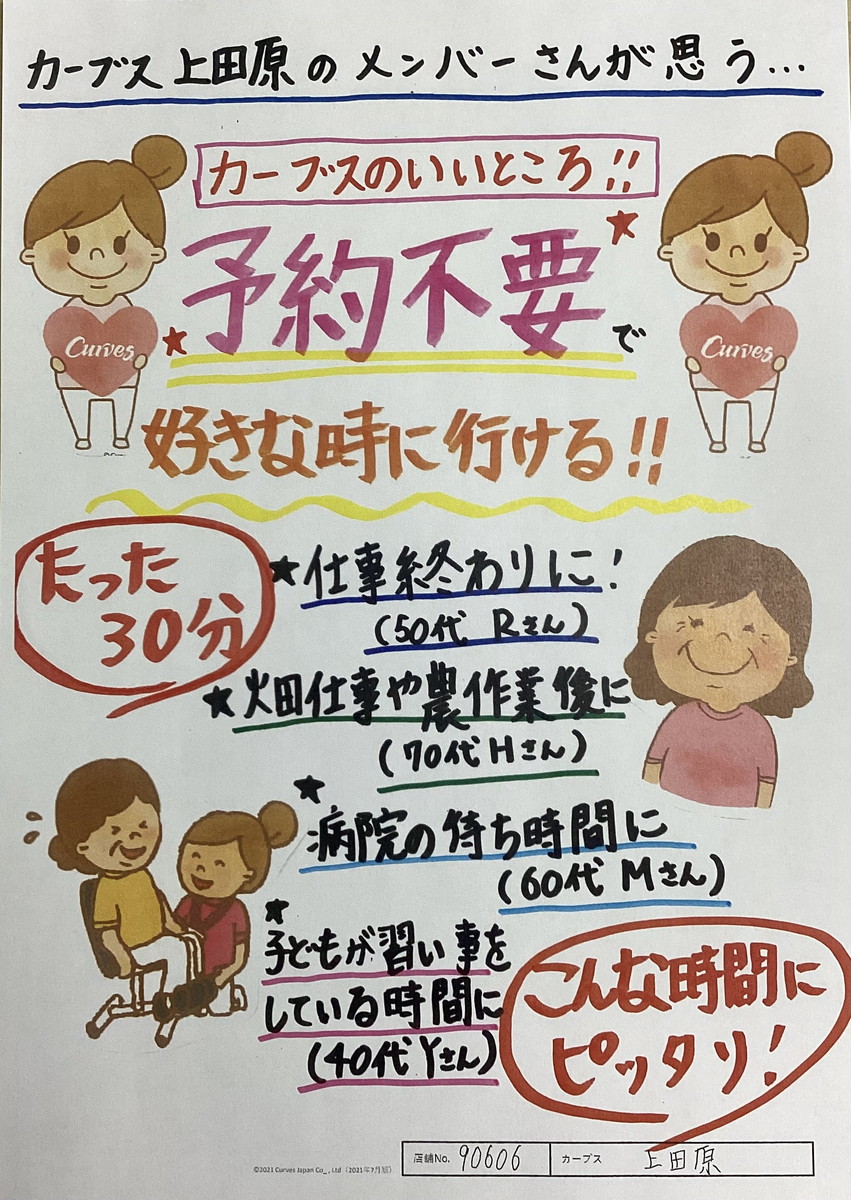 カーブス上田原のメンバーさんが思う…
カーブスのいいところ!!
予約不要で
Curves
Curves
好きな時に行ける!!
たった
30分
★仕事終わりに!
(50代 Rさん)
★畑仕事や農作業後に
(70代 Hさん)
★病院の待ち時間に
(60代 Mさん)
★子どもが習い事を
している時間に
(40代 Yさん)
こんな時間に
ピッタリ!
©2021 Curves Japan Co., Ltd (2021年7月版)
店舗No. 90606 カーブス 上田原